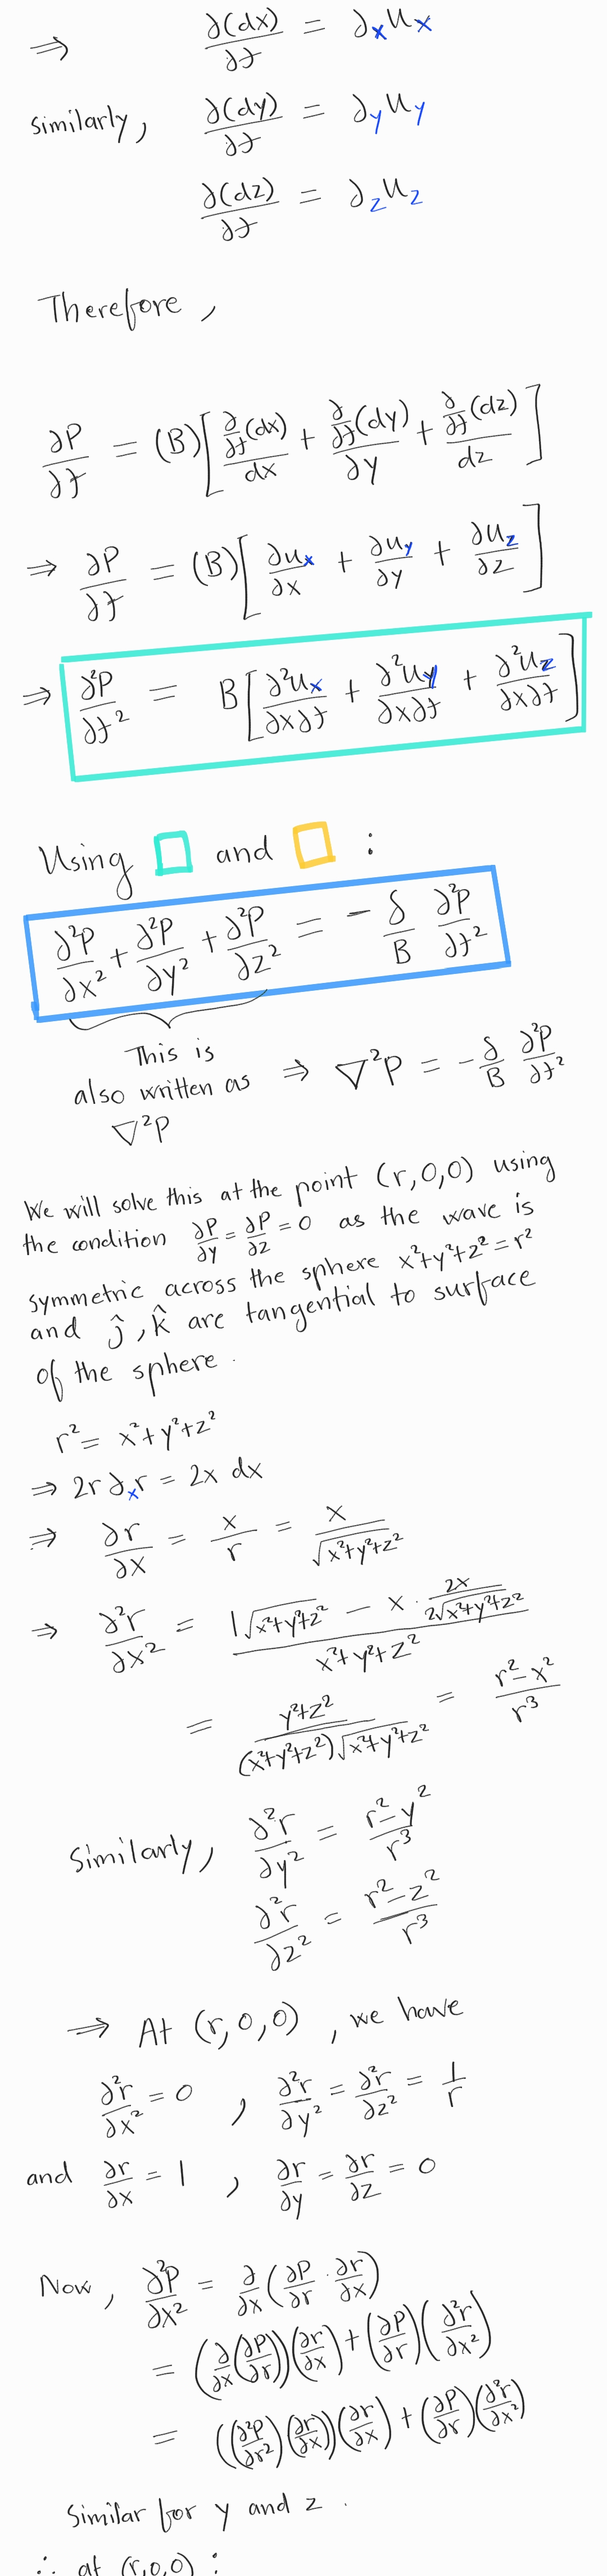 ⇒ ∂(dx)/∂t = ∂ₓuₓ
similarly, ∂(dy)/∂t = ∂_y u_y
∂(dz)/∂t = ∂_z u_z
Therefore,
∂P/∂t = (B)[ ∂/∂t(dx)/dx + ∂/∂t(dy)/∂y + ∂/∂t(dz)/dz ]
⇒ ∂P/∂t = (B)[ ∂uₓ/∂x + ∂u_y/∂y + ∂u_z/∂z ]
⇒ ∂²P/∂t² = B[ ∂²uₓ/∂x∂t + ∂²u_y/∂x∂t + ∂²u_z/∂x∂t ]
Using □ and □ :
∂²P/∂x² + ∂²P/∂y² + ∂²P/∂z² = - δ/B ∂²P/∂t²
This is
also written as ⇒ ∇²P = - δ/B ∂²P/∂t²
∇²P
We will solve this at the point (r,0,0) using
the condition ∂P/∂y = ∂P/∂z = 0 as the wave is
symmetric across the sphere x²+y²+z²=r²
and ĵ, k̂ are tangential to surface
of the sphere.
r² = x²+y²+z²
⇒ 2r ∂ₓr = 2x dx
⇒ ∂r/∂x = x/r = x/√(x²+y²+z²)
⇒ ∂²r/∂x² = (1√(x²+y²+z²) - x · 2x/(2√(x²+y²+z²)))/(x²+y²+z²)
= (y²+z²)/((x²+y²+z²)√(x²+y²+z²)) = (r²-x²)/r³
Similarly, ∂²r/∂y² = (r²-y²)/r³
∂²r/∂z² = (r²-z²)/r³
⇒ At (r,0,0), we have
∂²r/∂x² = 0 , ∂²r/∂y² = ∂²r/∂z² = 1/r
and ∂r/∂x = 1 , ∂r/∂y = ∂r/∂z = 0
Now, ∂²P/∂x² = ∂/∂x(∂P/∂r · ∂r/∂x)
= (∂/∂x(∂P/∂r))(∂r/∂x) + (∂P/∂r)(∂²r/∂x²)
= ((∂²P/∂r²)(∂r/∂x))(∂r/∂x) + (∂P/∂r)(∂²r/∂x²)
Similar for y and z.
∴ at (r,0,0) :